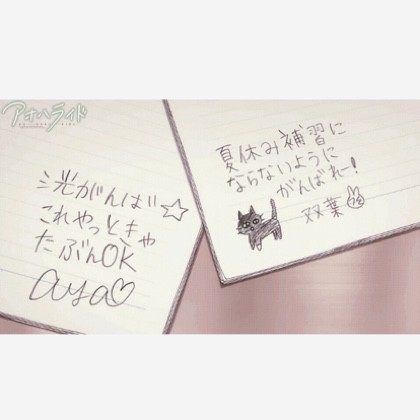 アオハライド
洸がんば☆
これやっときゃ
たぶんOK
aya♡
夏休み補習に
ならないように
がんばれー!
双葉